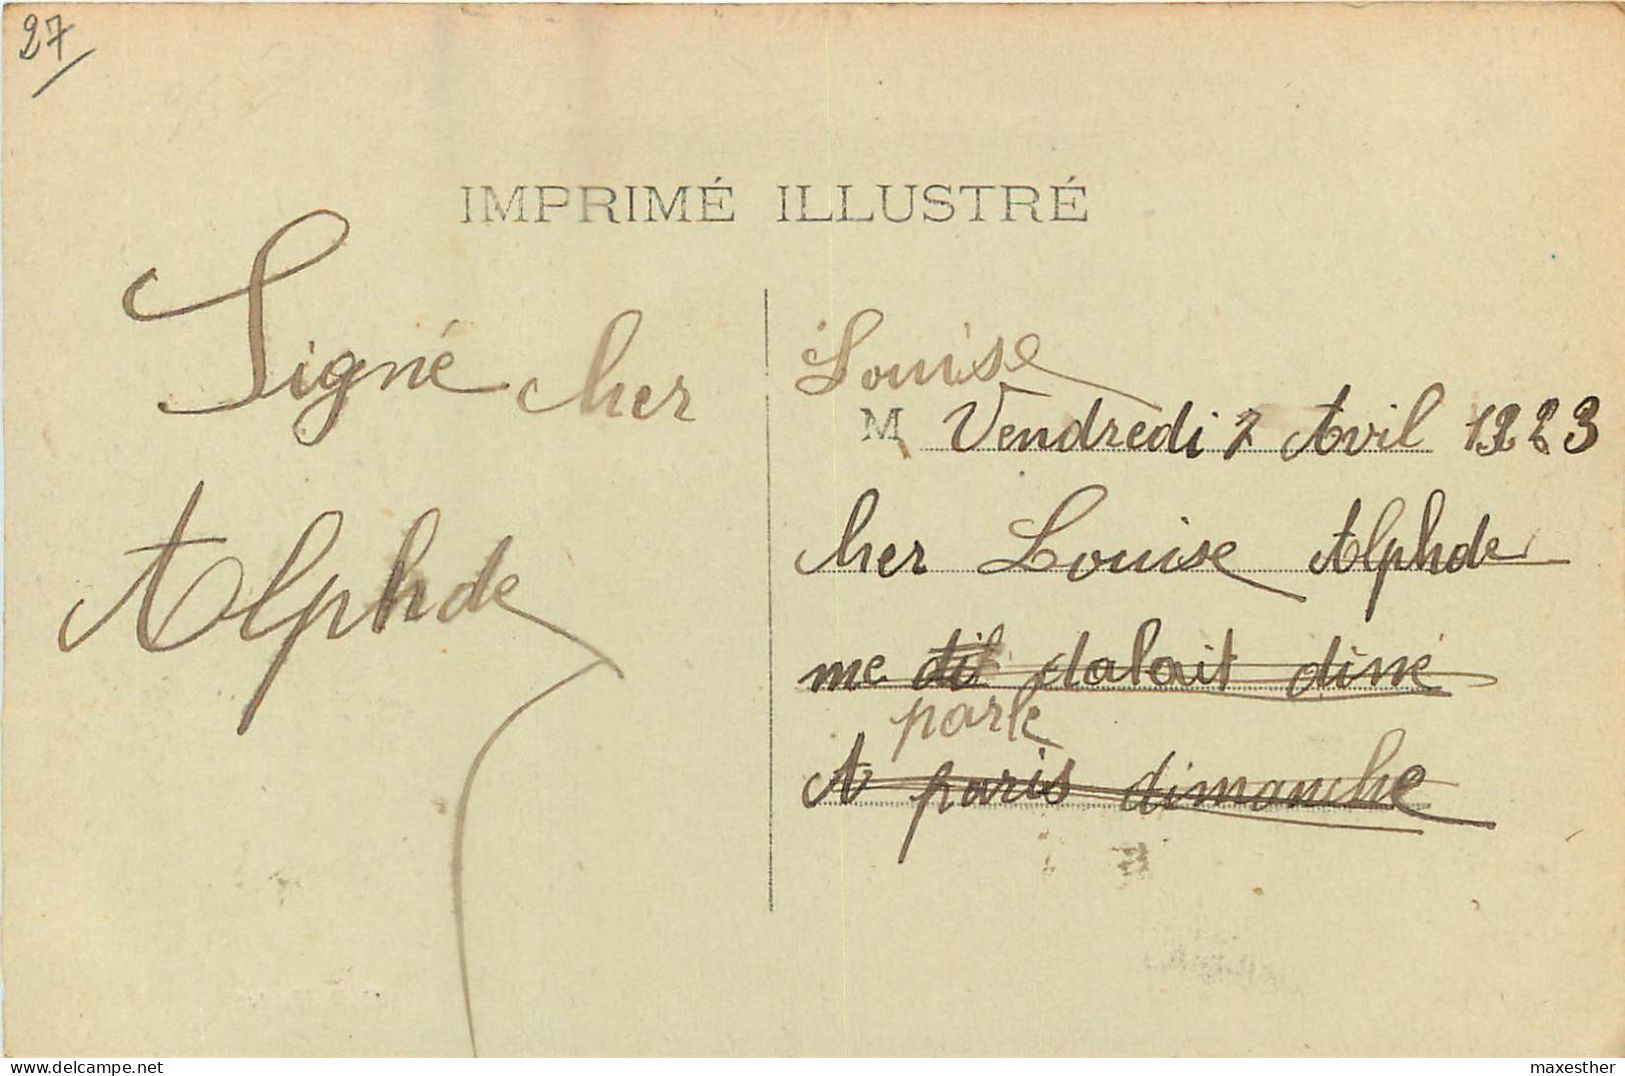 27
IMPRIMÉ ILLUSTRÉ
Signé cher
Alphde
Louise
M Vendredi 7 Avril 1923
cher Louise Alphde
me dalait diné
parle
A paris dimanche
maxesther